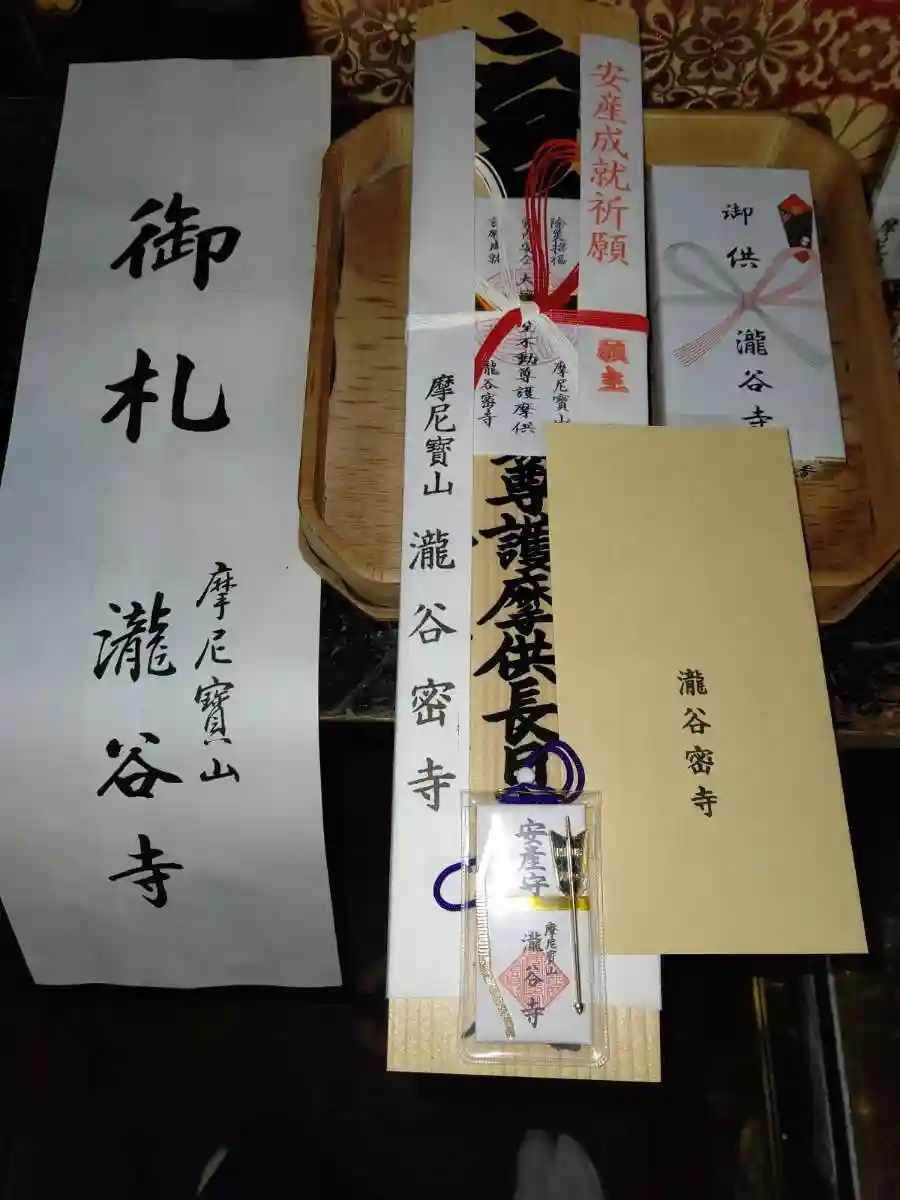 御札
摩尼寶山
瀧谷寺
安産成就祈願
願主
除災招福
家内安全
大
不動尊護摩供
摩尼寶山
瀧谷密寺
摩尼寶山 瀧谷密寺
尊護摩供長日
御供 瀧谷寺
瀧谷密寺
安産守
摩尼寶山
瀧谷寺